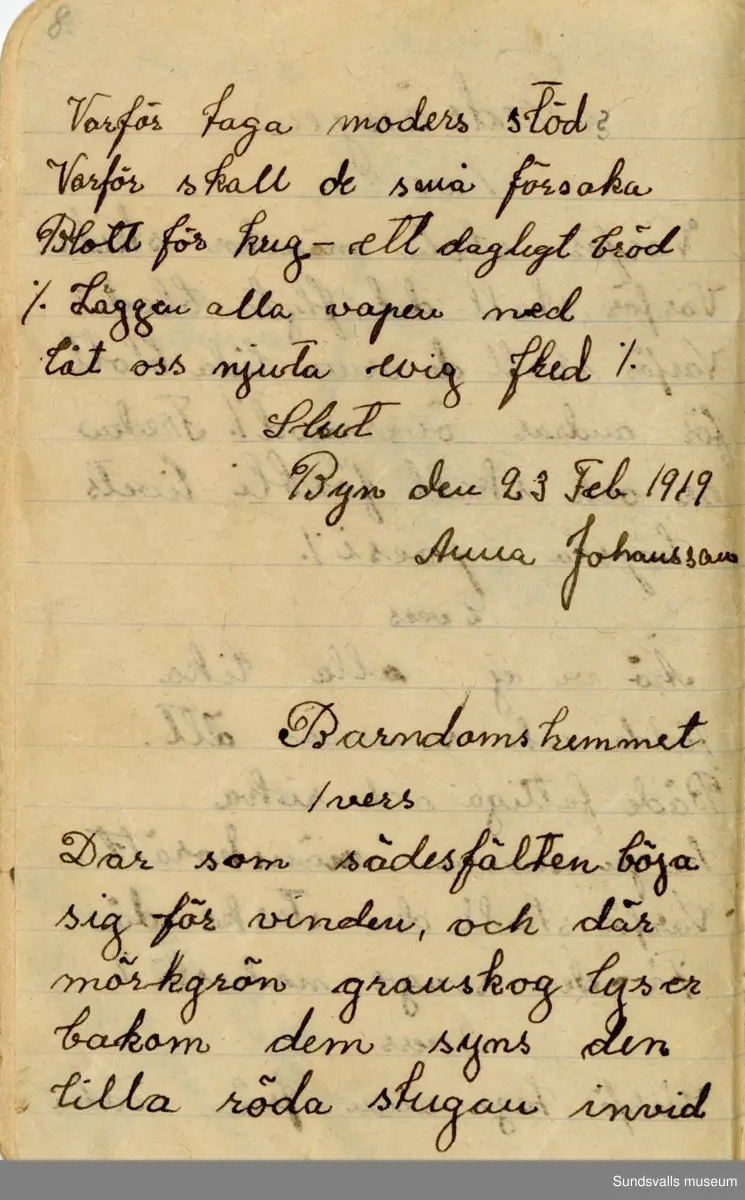 8
Varför taga moders stöd?
Varför skall de små försaka
Blott för krig - ett dagligt bröd
/. Läggen alla vapen ned
låt oss njuta evig fred /.
Slut
Byn den 23 Feb 1919
Anna Johansson
Barndomshemmet
1 vers
Där som sädesfälten böja
sig för vinden, och där
mörkgrön granskog lyser
bakom dem syns den
lilla röda stugan invid
Sundsvalls museum